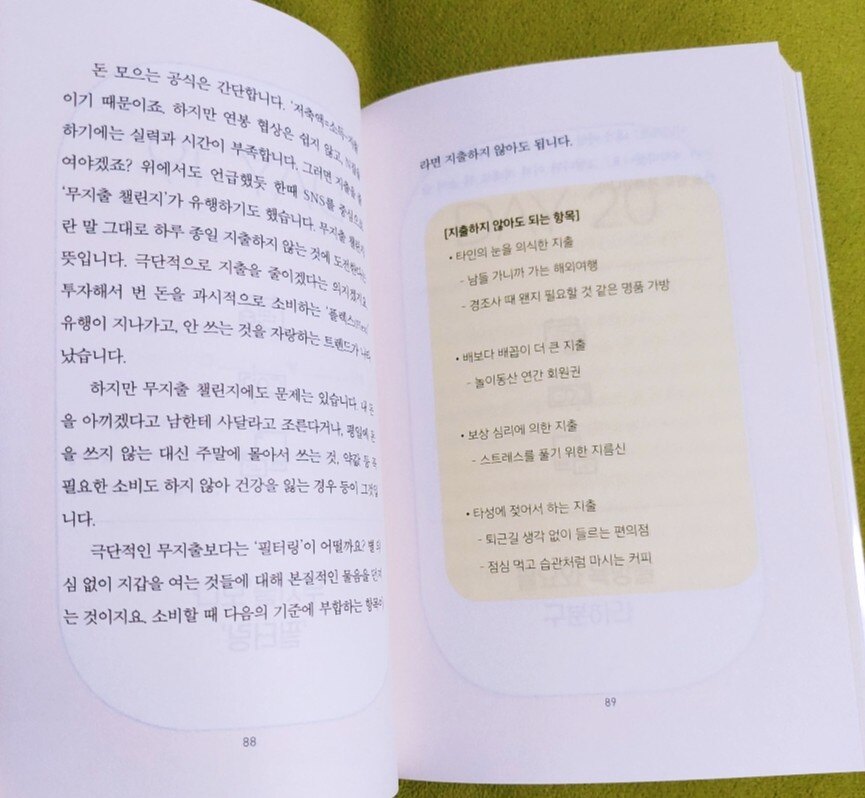 돈 모으는 공식은 간단합니다. '저축액=소득-지출'
이기 때문이죠. 하지만 연봉 협상은 쉽지 않고, N잡을
하기에는 실력과 시간이 부족합니다. 그러면 지출을 줄
여야겠죠? 위에서도 언급했듯 한때 SNS를 중심으로
'무지출 챌린지'가 유행하기도 했습니다. 무지출 챌린지
란 말 그대로 하루 종일 지출하지 않는 것에 도전한다는
뜻입니다. 극단적으로 지출을 줄이겠다는 의지겠지요.
투자해서 번 돈을 과시적으로 소비하는 '플렉스(Flex)'
유행이 지나가고, 안 쓰는 것을 자랑하는 트렌드가 나타
났습니다.
하지만 무지출 챌린지에도 문제는 있습니다. 내 돈
을 아끼겠다고 남한테 사달라고 조른다거나, 평일에 돈
을 쓰지 않는 대신 주말에 몰아서 쓰는 것, 약값 등 꼭
필요한 소비도 하지 않아 건강을 잃는 경우 등이 그것입
니다.
극단적인 무지출보다는 '필터링'이 어떨까요? 별 의
심 없이 지갑을 여는 것들에 대해 본질적인 물음을 던지
는 것이지요. 소비할 때 다음의 기준에 부합하는 항목이
88
라면 지출하지 않아도 됩니다.
[지출하지 않아도 되는 항목]
• 타인의 눈을 의식한 지출
- 남들 가니까 가는 해외여행
- 경조사 때 왠지 필요할 것 같은 명품 가방
• 배보다 배꼽이 더 큰 지출
- 놀이동산 연간 회원권
• 보상 심리에 의한 지출
- 스트레스를 풀기 위한 지름신
• 타성에 젖어서 하는 지출
- 퇴근길 생각 없이 들르는 편의점
- 점심 먹고 습관처럼 마시는 커피
89